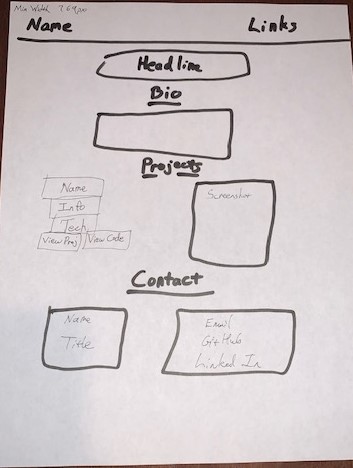 Name Links
Headline
Bio
Projects
Name
Info
Tech
View Proj View Code
Screenshot
Contact
Name
Title
Email
GitHub
Linked In